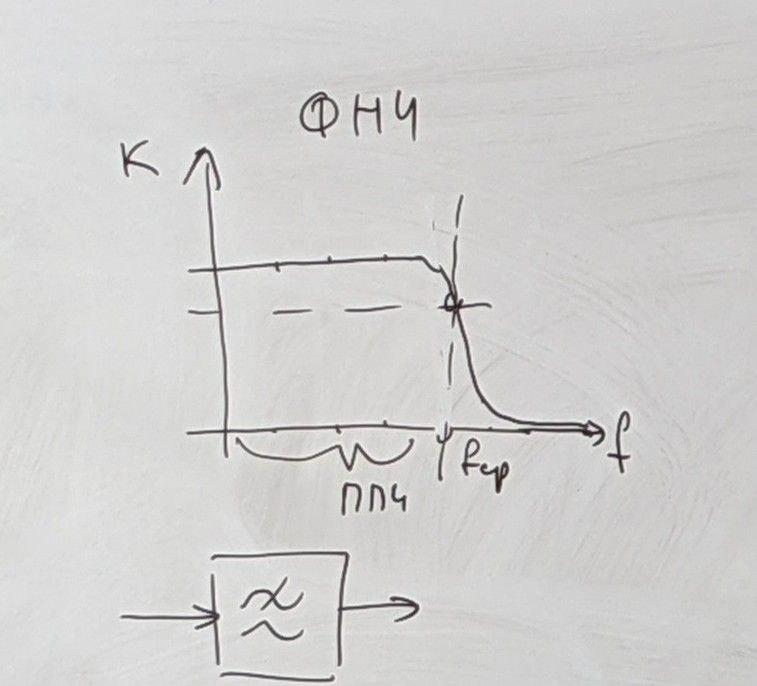 ФНЧ
K
f
fср
ППЧ